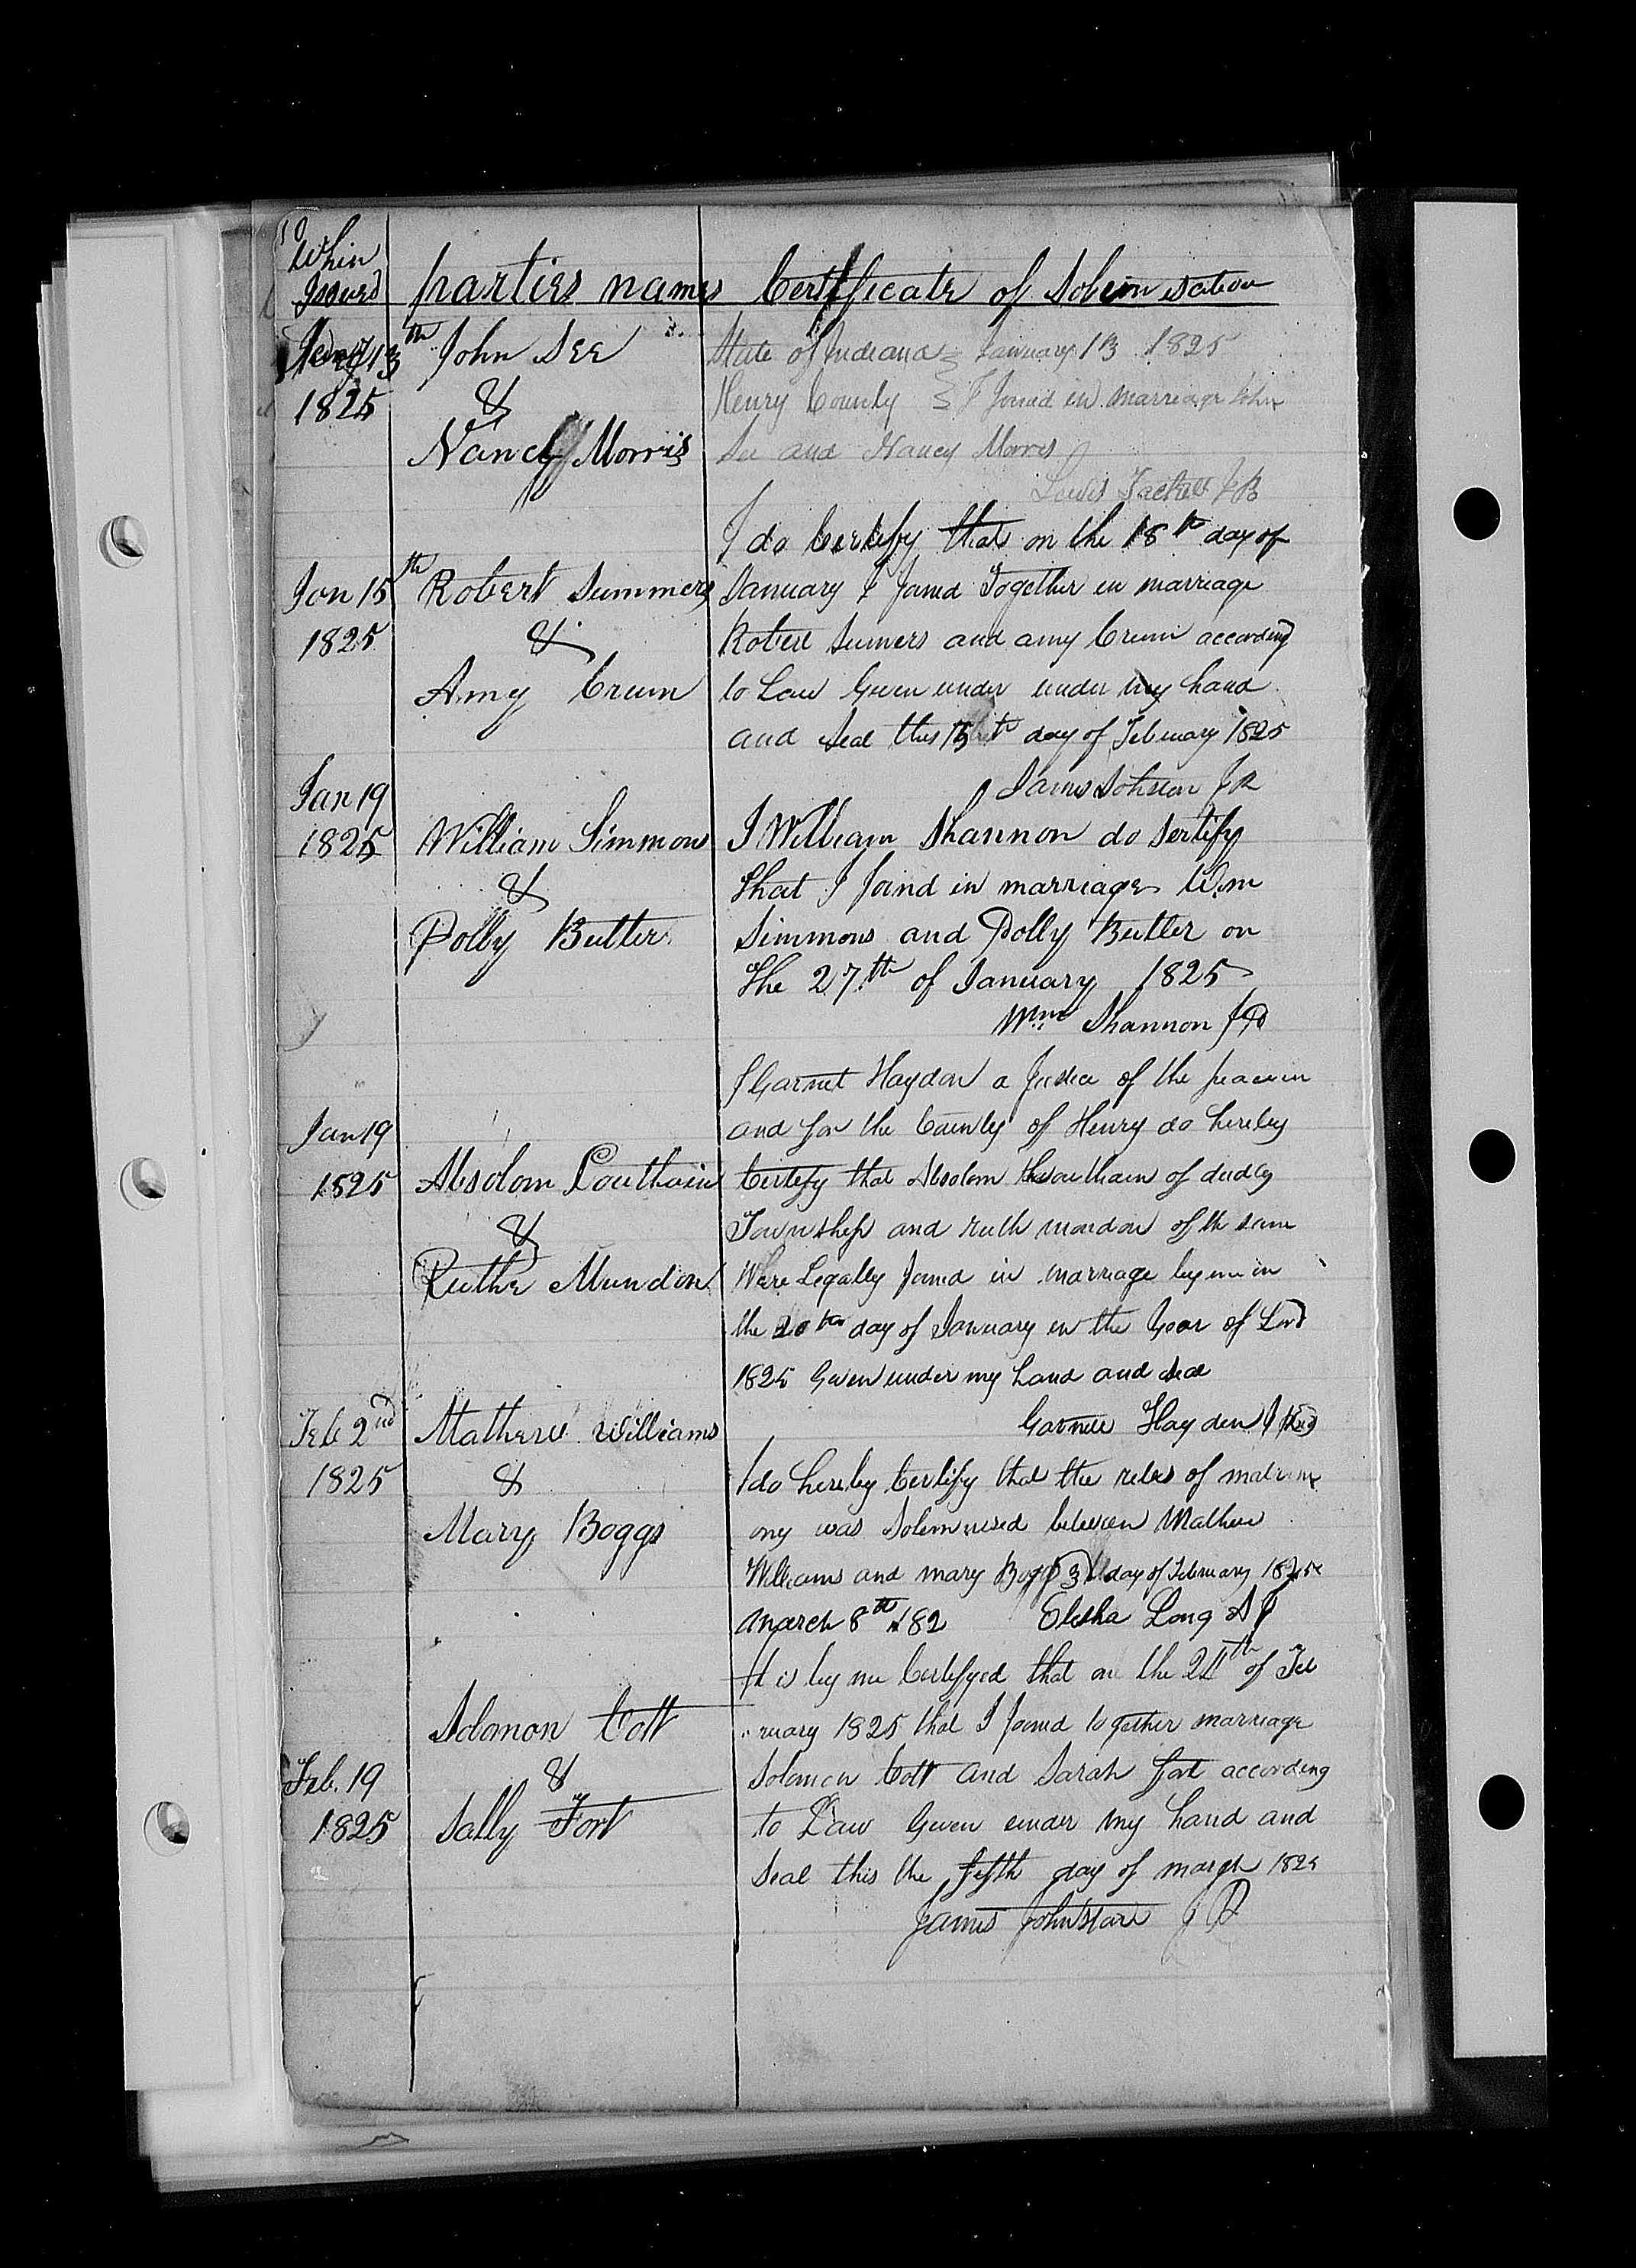 10
When
Issued
parties names
Certificate of Solemnisation
13th
1825
John See
&
Nancy Morris
State of Indiana January 13 1825
Henry County I Joined in marriage John
See and Nancy Morris
Lewis
I do Certify that on the 18th day of
Jan 15th
1825
Robert Summers
&
Amy Crum
January I Joined Together in marriage
Robert Sumers and amy Crum according
to Law Given under under my hand
and Seal this day of February 1825
James JP
Jan 19
1825
William Simmons
&
Polly Butler
I William Shannon do Sertify
that I Joind in marriage Wm
Simmons and Polly Butler on
the 27th of January 1825
Wm Shannon JP
I Garnet Haydon a Justice of the peace in
and for the County of Henry do hereby
Jan 19
1825
Absolom Louthain
&
Ruthe Mundon
Certify that Absolom of dudly
Township and ruth mondon of the same
Were Legally Joined in marriage by me in
the 20th day of January in the Year of Lord
1825 Given under my hand and Seal
Hayden
Feb 2nd
1825
Mathew Williams
&
Mary Boggs
I do hereby Certify that the rites of matrim
ony was Solemnised between Mathew
Williams and mary day of February 1825
march 8th 182 Elisha Long
It is by me Certifyed that on the 24th of Feb
Feb. 19
1825
Solomon Cott
&
Sally Fort
ruary 1825 that I Joined together marriage
Solomon Cott and Sarah fort according
to Law Given under my hand and
Seal this the fifth day of march 1825
James Johnston JP